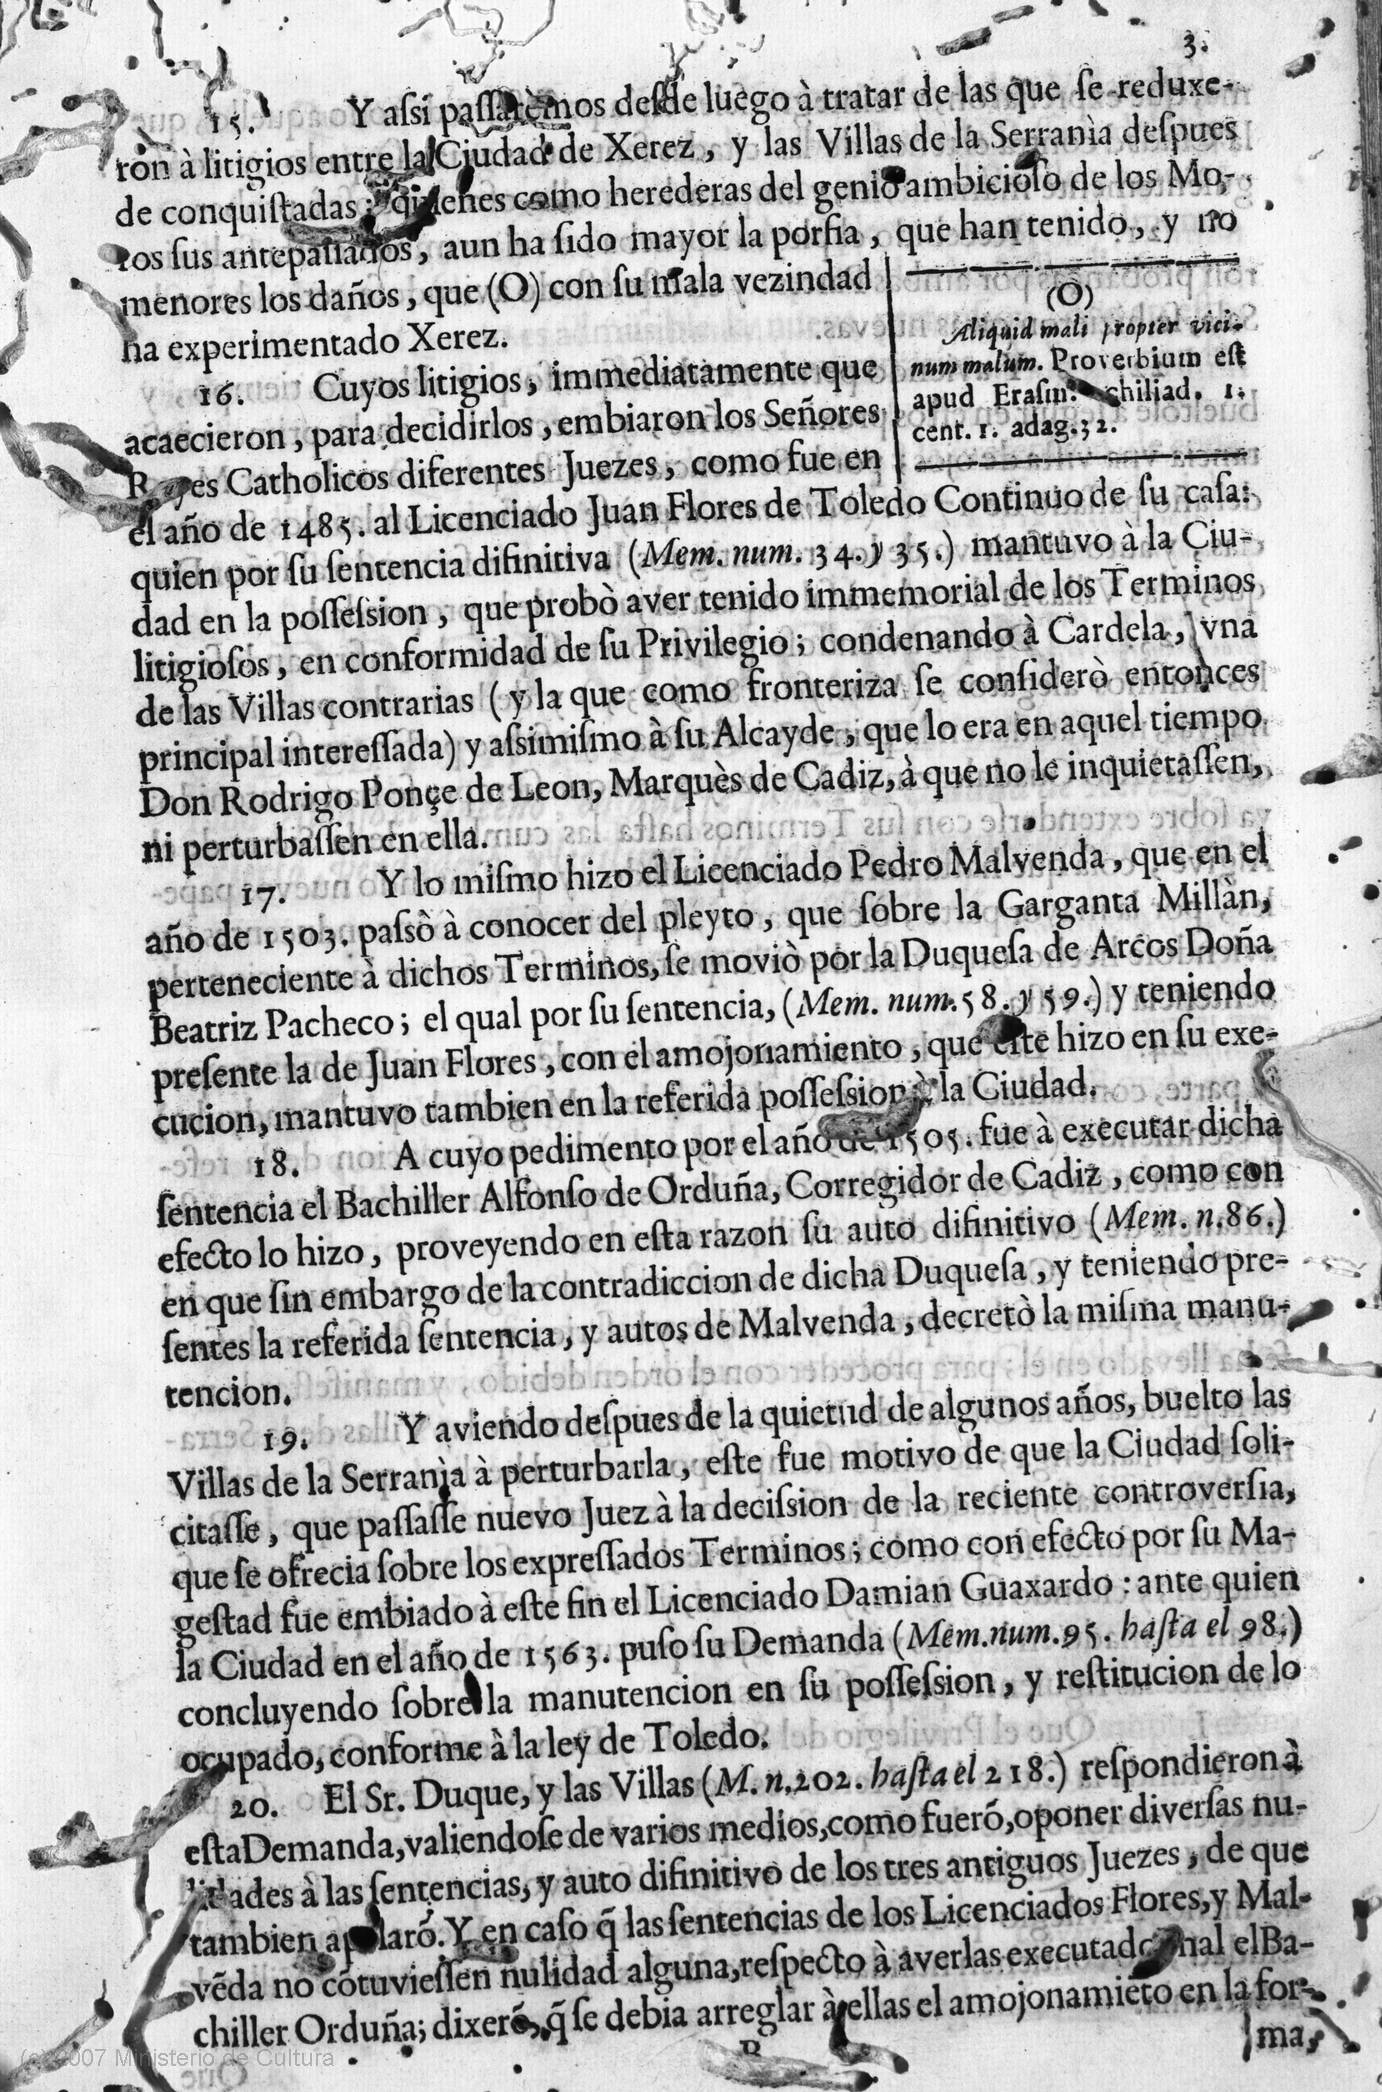 3.
15. Y assi passarèmos desde luego à tratar de las que se reduxe-
ron à litigios entre la Ciudad de Xerez, y las Villas de la Serranìa despues
de conquistadas; quienes como herederas del genio ambicioso de los Mo-
ros sus antepassados, aun ha sido mayor la porfia, que han tenido, y no
menores los daños, que (O) con su mala vezindad
ha experimentado Xerez.
(O)
Aliquid mali propter vici-
num malum. Proverbium est
apud Erasm. chiliad. 1.
cent. 1. adag. 32.
16. Cuyos litigios, immediatamente que
acaecieron, para decidirlos, embiaron los Señores
Reyes Catholicos diferentes Juezes, como fue en
el año de 1485. al Licenciado Juan Flores de Toledo Continuo de su casa:
quien por su sentencia difinitiva (Mem. num. 34. y 35.) mantuvo à la Ciu-
dad en la possession, que probò aver tenido immemorial de los Terminos
litigiosos, en conformidad de su Privilegio; condenando à Cardela, vna
de las Villas contrarias (y la que como fronteriza se considerò entonces
principal interessada) y assimismo à su Alcayde, que lo era en aquel tiempo
Don Rodrigo Ponçe de Leon, Marquès de Cadiz, à que no le inquietassen,
ni perturbassen en ella.
17. Y lo mismo hizo el Licenciado Pedro Malvenda, que en el
año de 1503. passò à conocer del pleyto, que sobre la Garganta Millàn,
perteneciente à dichos Terminos, se moviò por la Duquesa de Arcos Doña
Beatriz Pacheco; el qual por su sentencia, (Mem. num. 58. y 59.) y teniendo
presente la de Juan Flores, con el amojonamiento, que este hizo en su exe-
cucion, mantuvo tambien en la referida possession à la Ciudad.
18. A cuyo pedimento por el año de 1505. fue à executar dicha
sentencia el Bachiller Alfonso de Orduña, Corregidor de Cadiz, como con
efecto lo hizo, proveyendo en esta razon su auto difinitivo (Mem. n. 86.)
en que sin embargo de la contradiccion de dicha Duquesa, y teniendo pre-
sentes la referida sentencia, y autos de Malvenda, decretò la misma manu-
tencion.
19. Y aviendo despues de la quietud de algunos años, buelto las
Villas de la Serranìa à perturbarla, este fue motivo de que la Ciudad soli-
citasse, que passasse nuevo Juez à la decission de la reciente controversia,
que se ofrecia sobre los expressados Terminos; como con efecto por su Ma-
gestad fue embiado à este fin el Licenciado Damian Guaxardo: ante quien
la Ciudad en el año de 1563. puso su Demanda (Mem. num. 95. hasta el 98.)
concluyendo sobre la manutencion en su possession, y restitucion de lo
ocupado, conforme à la ley de Toledo.
20. El Sr. Duque, y las Villas (M. n. 202. hasta el 218.) respondieron à
esta Demanda, valiendose de varios medios, como fuerõ, oponer diversas nu-
lidades à las sentencias, y auto difinitivo de los tres antiguos Juezes, de que
tambien apelarõ. Y en caso q̃ las sentencias de los Licenciados Flores, y Mal-
vẽda no cõtuviessen nulidad alguna, respecto à averlas executado mal el Ba-
chiller Orduña; dixerõ, q̃ se debia arreglar à ellas el amojonamiẽto en la for-
B
ma,
(c) 2007 Ministerio de Cultura